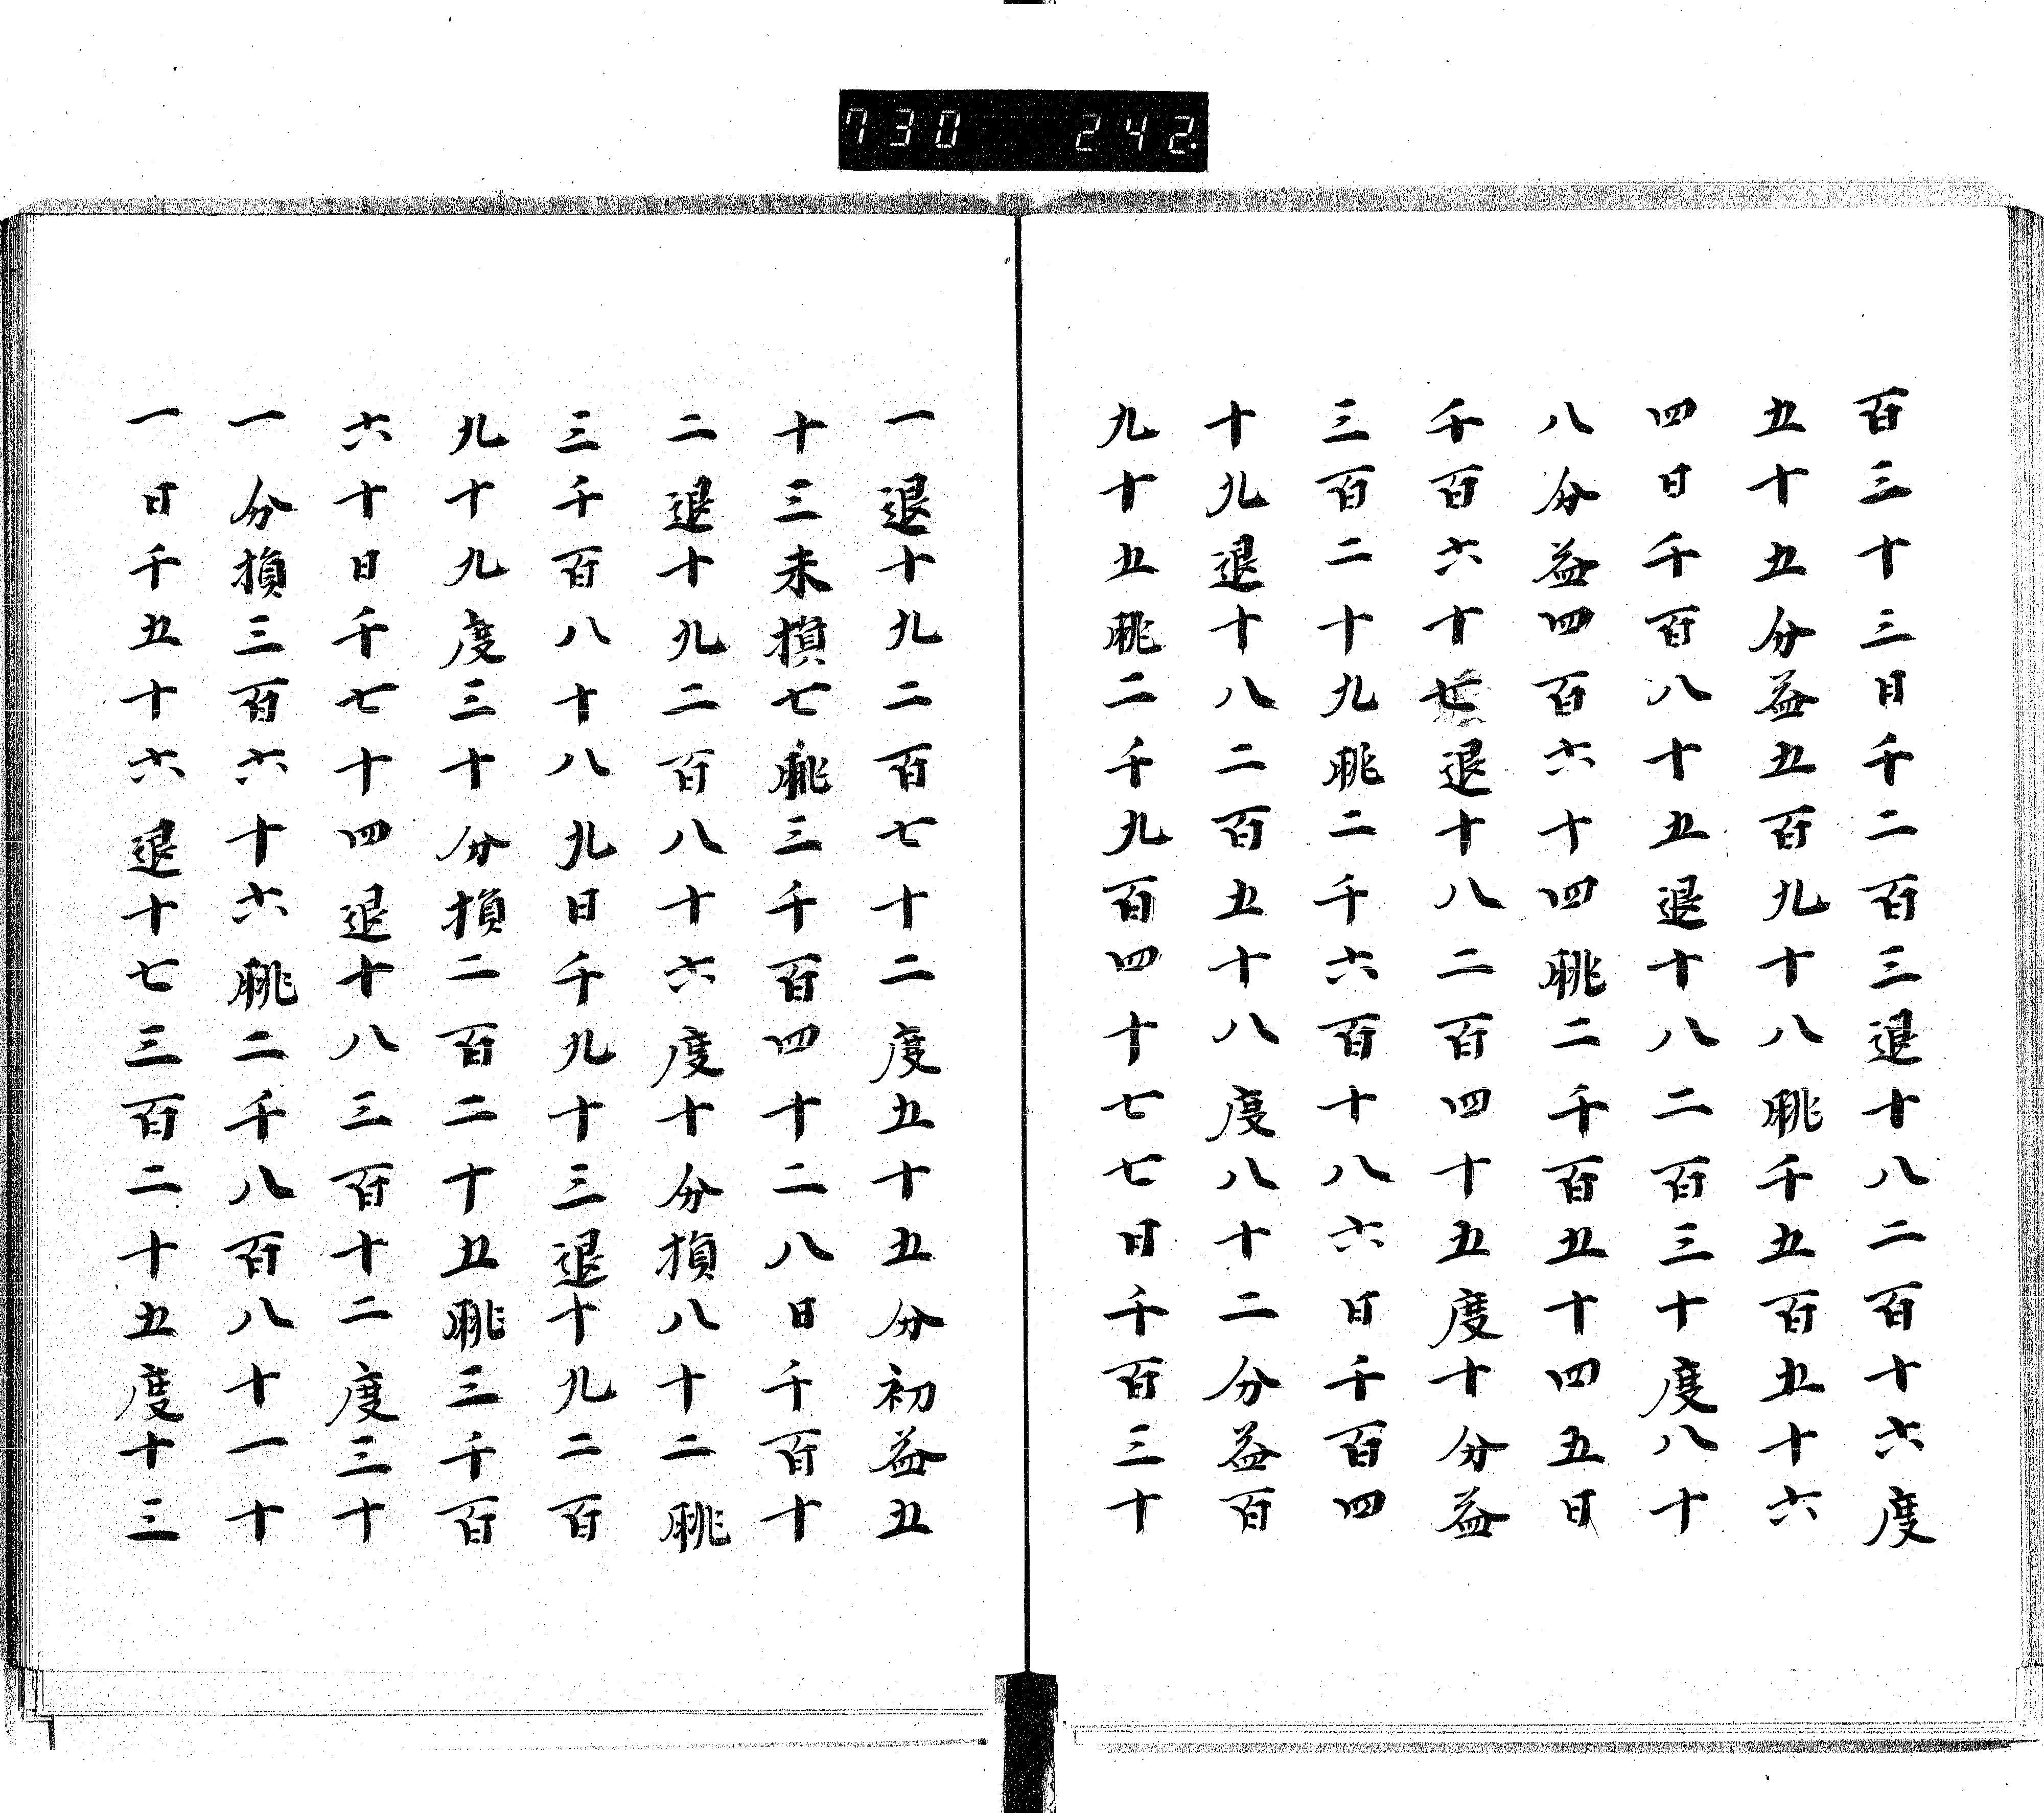 730 242.
百三十三日千二百三退十八二百十六度
五十五分益五百九十八脁千五百五十六
四日千百八十五退十八二百三十度八十
八分益四百六十四脁二千百五十四五日
千百六十七退十八二百四十五度十分益
三百二十九脁二千六百十八六日千百四
十九退十八二百五十八度八十二分益百
九十五脁二千九百四十七七日千百三十
一退十九二百七十二度五十五分初益五
十三末損七脁三千百四十二八日千百十
二退十九二百八十六度十分損八十二脁
三千百八十八九日千九十三退十九二百
九十九度三十分損二百二十五脁三千百
六十日千七十四退十八三百十二度三十
一分損三百六十六脁二千八百八十一十
一日千五十六退十七三百二十五度十三